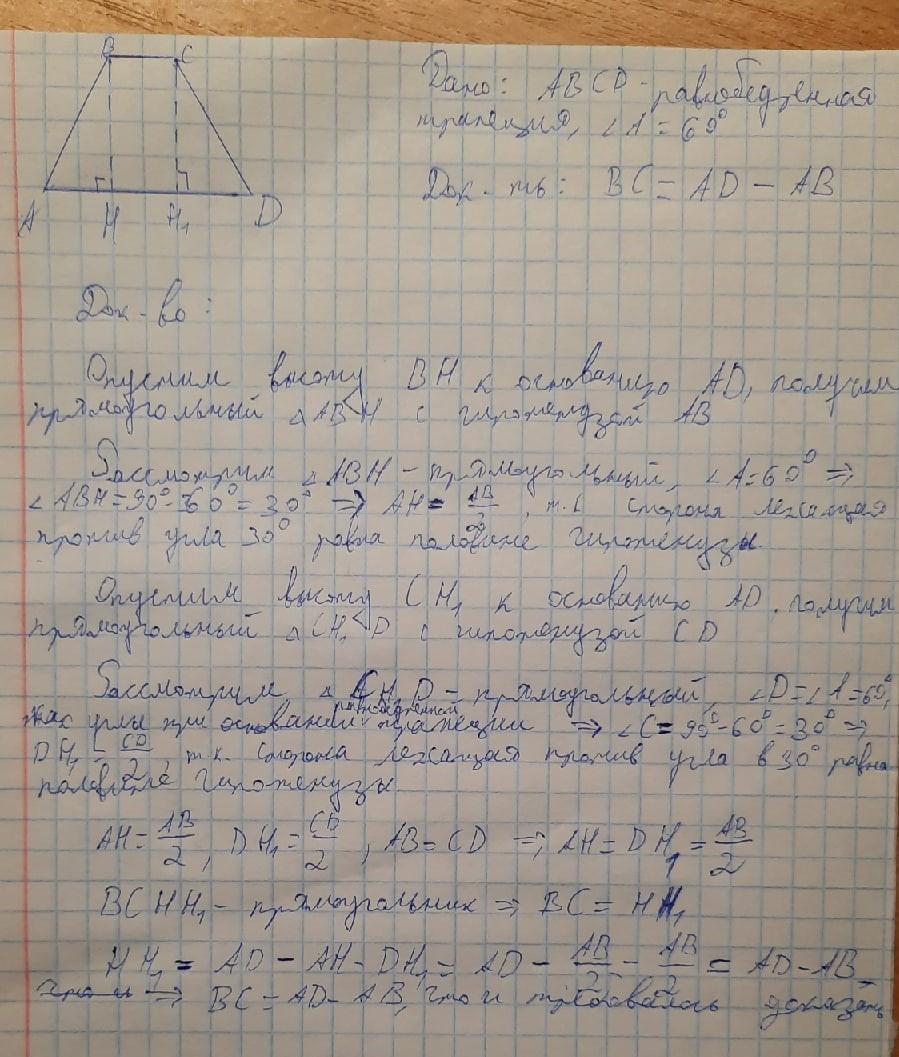 B C
A H H₁ D
Дано: ABCD - равнобедренная
трапеция, ∠A = 60°
Док-ть: BC = AD - AB
Док-во:
Опустим высоту BH к основанию AD, получим
прямоугольный △ABH с гипотенузой AB
Рассмотрим △ABH - прямоугольный, ∠A=60° ⇒
∠ABH=90°-60°=30° ⇒ AH= AB/2, т.к сторона лежащая
против угла 30° равна половине гипотенузы
Опустим высоту CH₁ к основанию AD, получим
прямоугольный △CH₁D с гипотенузой CD
Рассмотрим △CH₁D - прямоугольный, ∠D=∠A=60°,
как углы при основании равнобедренной трапеции ⇒ ∠C=90°-60°=30° ⇒
DH₁ = CD/2, т.к. сторона лежащая против угла в 30° равна
половине гипотенузы
AH= AB/2, DH₁= CD/2, AB=CD ⇒ AH=DH₁= AB/2
BCHH₁ - прямоугольник ⇒ BC=HH₁
HH₁ = AD - AH - DH₁ = AD - AB/2 - AB/2 = AD-AB
⇒ BC=AD-AB, что и требовалось доказать